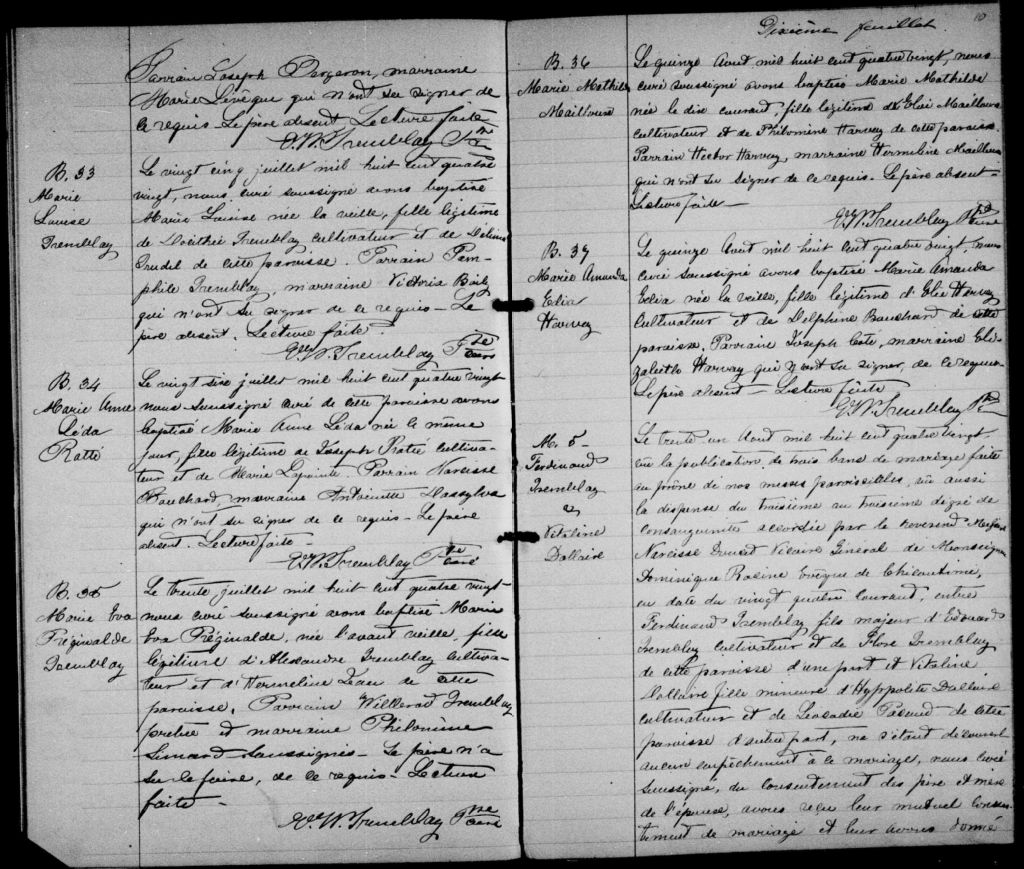 Parrain Joseph Bergeron, marraine
Marie Lévêque qui n'ont su signer de
ce requis. Le père absent Lecture faite
W. Tremblay Ptre
B. 33
Marie
Louise
Tremblay
Le vingt cinq juillet mil huit cent quatre
vingt, nous, curé soussigné avons baptisé
Marie Louise née la veille, fille légitime
de Tremblay cultivateur et de
de cette paroisse. Parrain Pam-
phile Tremblay, marraine Victoria
qui n'ont su signer de ce requis - Le
père absent. Lecture faite
W. Tremblay Ptre
B. 34
Marie Anne
Léda
Ratté
Le vingt six juillet mil huit cent quatre vingt
nous soussigné curé de cette paroisse avons
baptisé Marie Anne Léda née le même
jour, fille légitime de Joseph Ratté cultiva-
teur et de Marie Lapointe Parrain Narcisse
Bouchard, marraine Antoinette
qui n'ont su signer de ce requis - Le père
absent. Lecture faite -
W. Tremblay Ptre curé
B. 35
Marie Eva
Réginalde
Tremblay
Le trente juillet mil huit cent quatre vingt
nous curé soussigné avons baptisé Marie
Eva Réginalde, née l'avant veille, fille
légitime d'Alexandre Tremblay cultiva-
teur et d'Hermeline Jean de cette
paroisse. Parrain Tremblay
prêtre et marraine Philomène
Simard soussignés - Le père n'a
su le faire, de ce requis - Lecture
faite -
W. Tremblay Ptre curé
Dixième feuillet
10
B. 36
Marie Mathilde
Mailloux
Le quinze Aout mil huit cent quatre vingt, nous
curé soussigné avons baptisé Marie Mathilde
née le dix courant, fille légitime de Elie Mailloux
cultivateur et de Philomine Harvay de cette paroisse.
Parrain Hector Harvay, marraine Hermeline Mailloux
qui n'ont su signer de ce requis. Le père absent -
Lecture faite -
W. Tremblay Ptre
B. 37
Marie Amanda
Elia
Harvay
Le quinze Aout mil huit cent quatre vingt, nous
curé soussigné avons baptisé Marie Amanda
Eelia née la veille, fille légitime d'Elie Harvay
cultivateur et de Delphine Bouchard de cette
paroisse. Parrain Joseph Coté, marraine Eli-
zabeth Harvay qui n'ont su signer, de ce requis
Le père absent - Lecture faite
W. Tremblay Ptre
M. 5 -
Ferdinand
Tremblay
&
Vitaline
Dallaire
Le trente un Aout mil huit cent quatre vingt
vu la publication de trois bans de mariage faite
au prône de nos messes paroissiales, vu aussi
la dispense du troisième au troisième degré de
consanguinité accordée par le Révérend
Narcisse Doucet Vicaire Général de Monseigneur
Dominique Racine Evêque de Chicoutimi,
en date du vingt courant, entre
Ferdinand Tremblay fils majeur d'Edouard
Tremblay cultivateur et de Flore Tremblay
de cette paroisse d'une part et Vitaline
Dallaire fille mineure d'Hyppolite Dallaire
cultivateur et de Léocadie de cette
paroisse d'autre part, ne s'étant découvert
aucun empêchement à ce mariage, nous curé
soussigné, du consentement des père et mère
de l'épouse, avons reçu leur mutuel consen-
tement de mariage et leur avons donné